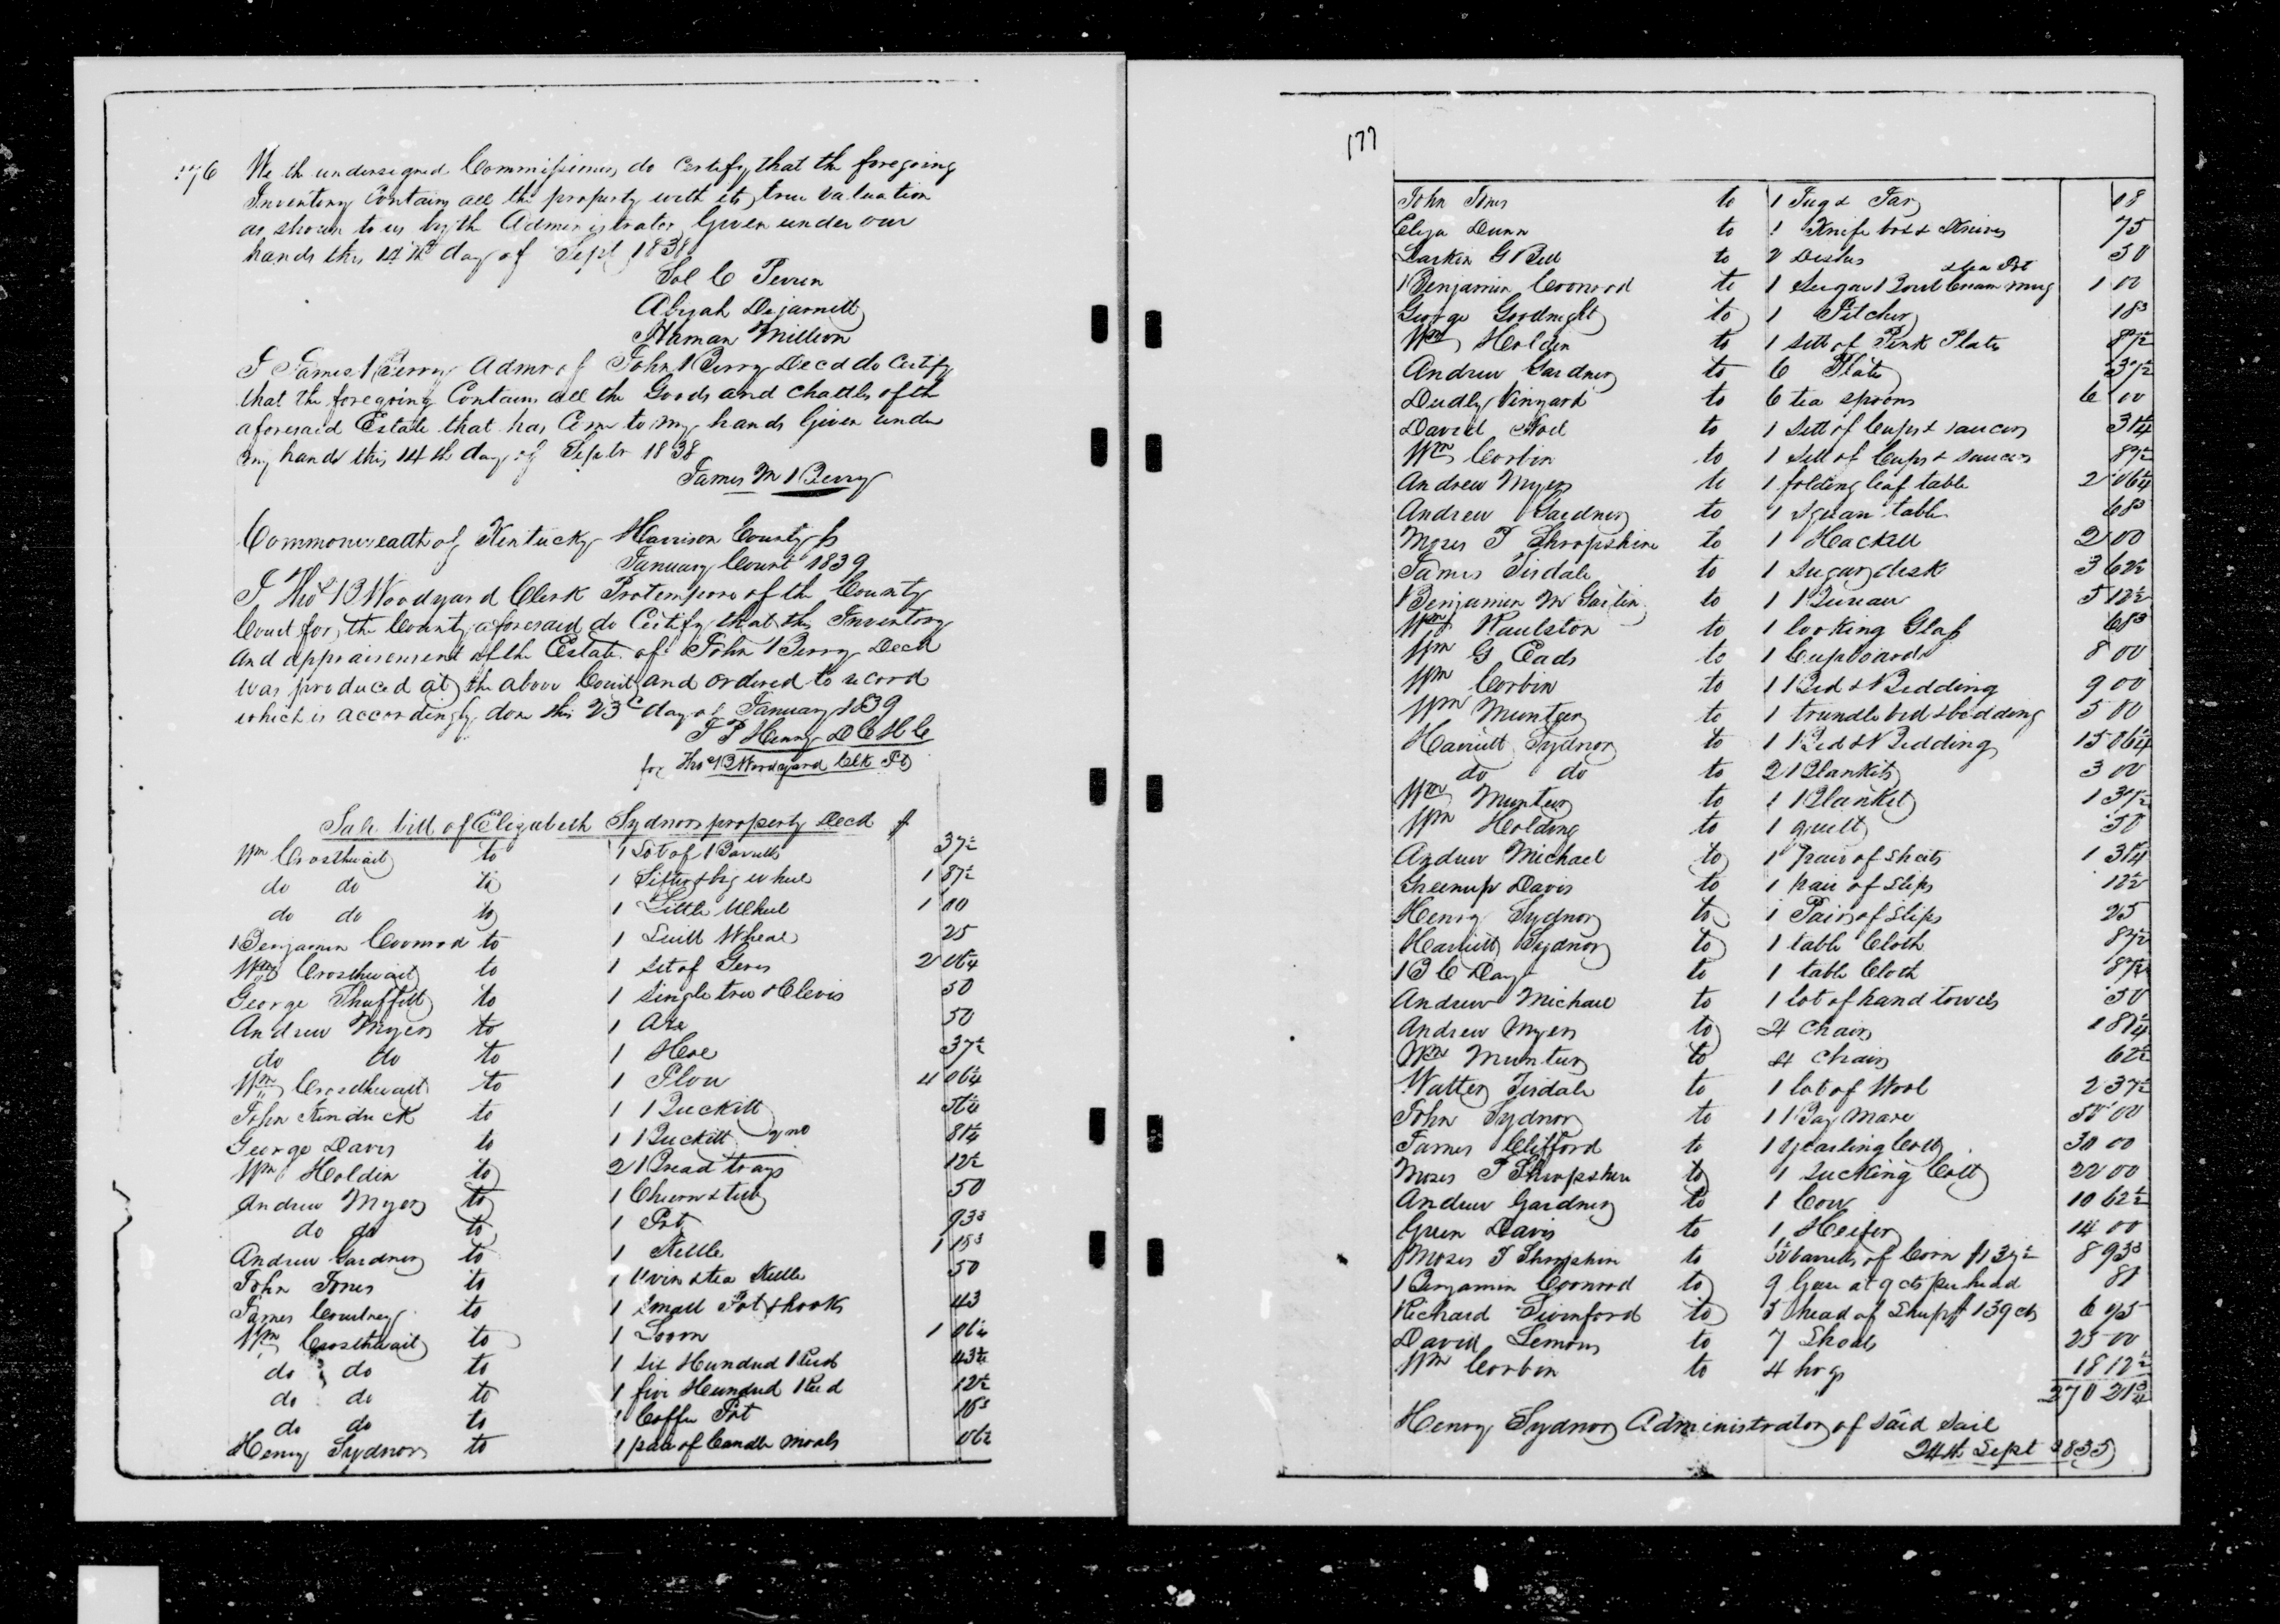 176 We the undersigned Commissioners do Certify that the foregoing
Inventory Contains all the property with its true valuation
as shown to us by the Administrator Given under our
hands this 14th day of Sept 1838
Sol C Perrin
Abijah Dejarnett
Haman Million
I James Berry Admr of John Berry Decd do Certify
that the foregoing Contains all the Goods and chattles of the
aforesaid Estate that has Come to my hands Given under
my hand this 14th day of Septr 1838
James M Berry
Commonwealth of Kentucky Harrison County Ss
January Court 1839
I Thos B Woodyard Clerk Protempore of the County
Court for the County aforesaid do Certify that this Inventory
and appraisement of the Estate of John Berry Decd
was produced at the above Court and ordered to record
which is accordingly done this 23d day of January 1839
J P Henry D C H C
for Thos B Woodyard Clk Pt
Sale bill of Elizabeth Sydnors property Decd $
Wm Crosthwait to 1 Lot of Barrells 37½
do do to 1 Sifter & big wheel 1 87½
do do to 1 Little Wheel 1 00
Benjamin Coonrod to 1 Quill Wheal 25
Wm Crosthwait to 1 set of Gears 2 06¼
George Shuffitt to 1 single tree & Clevis 50
Andrew Myers to 1 Axe 50
do do to 1 Hoe 37½
Wm Crosthwait to 1 Plow 4 06¼
John Kindrick to 1 Buckitt 56¼
George Davis to 1 Buckitt 2 no 81¼
Wm Holdin to 2 Bread trays 12½
Andrew Myers to 1 Churn & tub 50
do do to 1 Pot 93¾
Andrew Gardner to 1 Kettle 1 18¾
John Jones to 1 Oven & tea Kettle 50
James Courtney to 1 small Pot & hooks 43
Wm Crosthwait to 1 Loom 1 06¼
do do to 1 six Hundred Reed 43¾
do do to 1 five Hundred Reed 12½
do do to 1 Coffee Pot 18¾
Henry Sydnor to 1 pair of Candle Molds 06¼
177
John Jones to 1 Jug & Jar 18
Eliza Dunn to 1 Knife box & Knives 75
Larkin G Bell to 2 Dishes 50
& tea Pot
Benjamin Coonrod to 1 Sugar Bowl Cream mug 1 00
George Goodnight to 1 Pitcher 18¾
Wm Holdin to 1 sett of Pink Plates 87½
Andrew Gardner to 6 Plates 37½
Dudly Vinyard to 6 tea spoons 6 00
David Noel to 1 Sett of Cups & saucers 31¼
Wm Corbin to 1 sett of Cups & saucers 87½
Andrew Myers to 1 folding leaf table 2 06¼
Andrew Gardner to 1 squan table 68¾
Moses T Shropshire to 1 Hackell 2 00
James Tisdale to 1 Sugar desk 3 62½
Benjamin M Gaitin to 1 Bureau 5 12½
Wm Raulston to 1 looking Glass 68¾
Wm G Eads to 1 Cupboard 8 00
Wm Corbin to 1 Bed & Bedding 9 00
Wm Munter to 1 trundle bed & bedding 5 00
Harriett Sydnor to 1 Bed & Bedding 15 06¼
do do to 2 Blankits 3 00
Wm Munter to 1 Blanket 1 37½
Wm Holding to 1 quilt 50
Andrew Michael to 1 pair of sheets 1 31¼
Greenup Davis to 1 pair of slips 12½
Henry Sydnor to 1 Pair of Slips 25
Harriett Sydnor to 1 table Cloth 87½
B C Day to 1 table Cloth 87½
Andrew Michael to 1 lot of hand towels 50
Andrew Myers to 4 chairs 1 81¼
Wm Munter to 4 chairs 62½
Walter Tisdale to 1 lot of Wool 2 37½
John Sydnor to 1 Bay Mare 50 00
James Clifford to 1 yearling Colt 30 00
Moses T Shropshire to 1 Sucking Colt 22 00
Andrew Gardner to 1 Cow 10 62½
Green Davis to 1 Heifer 14 00
Moses T Shropshire to barrells of Corn $1 37½ 8 93¾
Benjamin Coonrod to 9 Geese at 9 cts per head 81
Richard Swinford to 5 head of Sheep $1 39 cts 6 95
David Lemons to 7 Shoats 25 00
Wm Corbin to 4 hogs 18 12½
270 21¾
Henry Sydnor Administrator of said Sail
24th Sept 1835